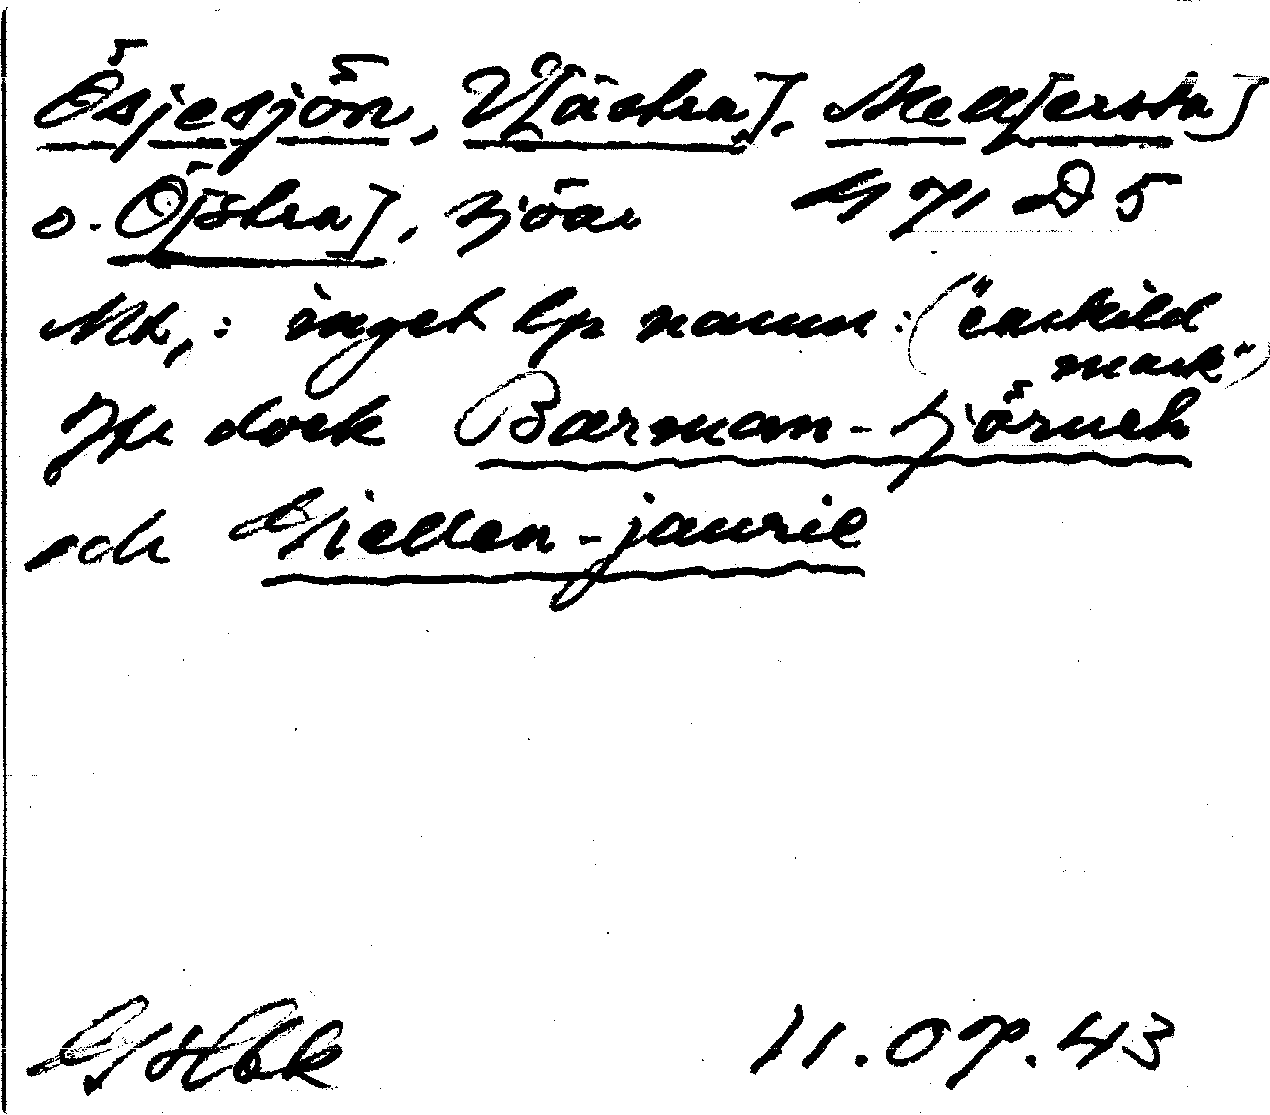 Ösjesjön, V[ästra], Mell[ersta]
o. Ö[stra], sjöar G 71 D 5
Mt,: inget lp namn: ("enskild
mark")
Jfr dock Barman-tjörneh
och Giellen-jaurie
11.07.43